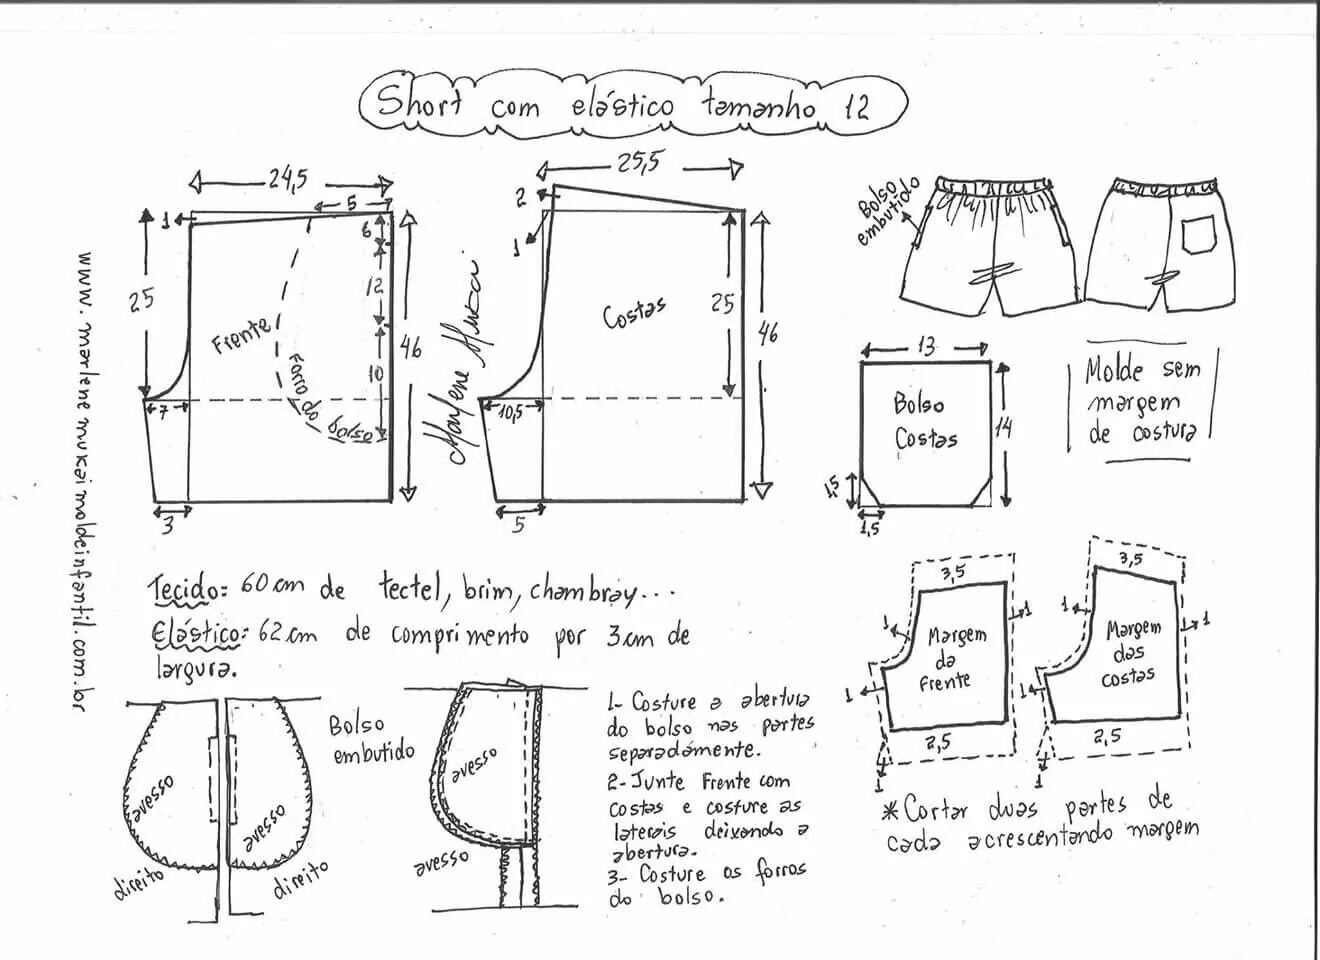 Short com elástico tamanho 12
24,5
5
1
6
12
25
46
10
Frente
Forro do
bolso
7
3
25,5
2
1
25
46
Costas
10,5
5
Marlene Mukai
www.marlenemukaimoldeinfantil.com.br
Bolso
embutido
13
Bolso
Costas
14
1,5
1,5
Molde sem
margem
de costura
Tecido: 60 cm de tectel, brim, chambray...
Elástico: 62 cm de comprimento por 3 cm de
largura.
3,5
1
1
Margem
da
Frente
1
2,5
1
3,5
1
1
Margem
das
costas
1
2,5
1
Bolso
embutido
avesso
avesso
direito
direito
avesso
avesso
1- Costure a abertura
do bolso nas partes
separadamente.
2- Junte Frente com
costas e costure as
laterais deixando a
abertura.
3- Costure os forros
do bolso.
*Cortar duas partes de
cada acrescentando margem